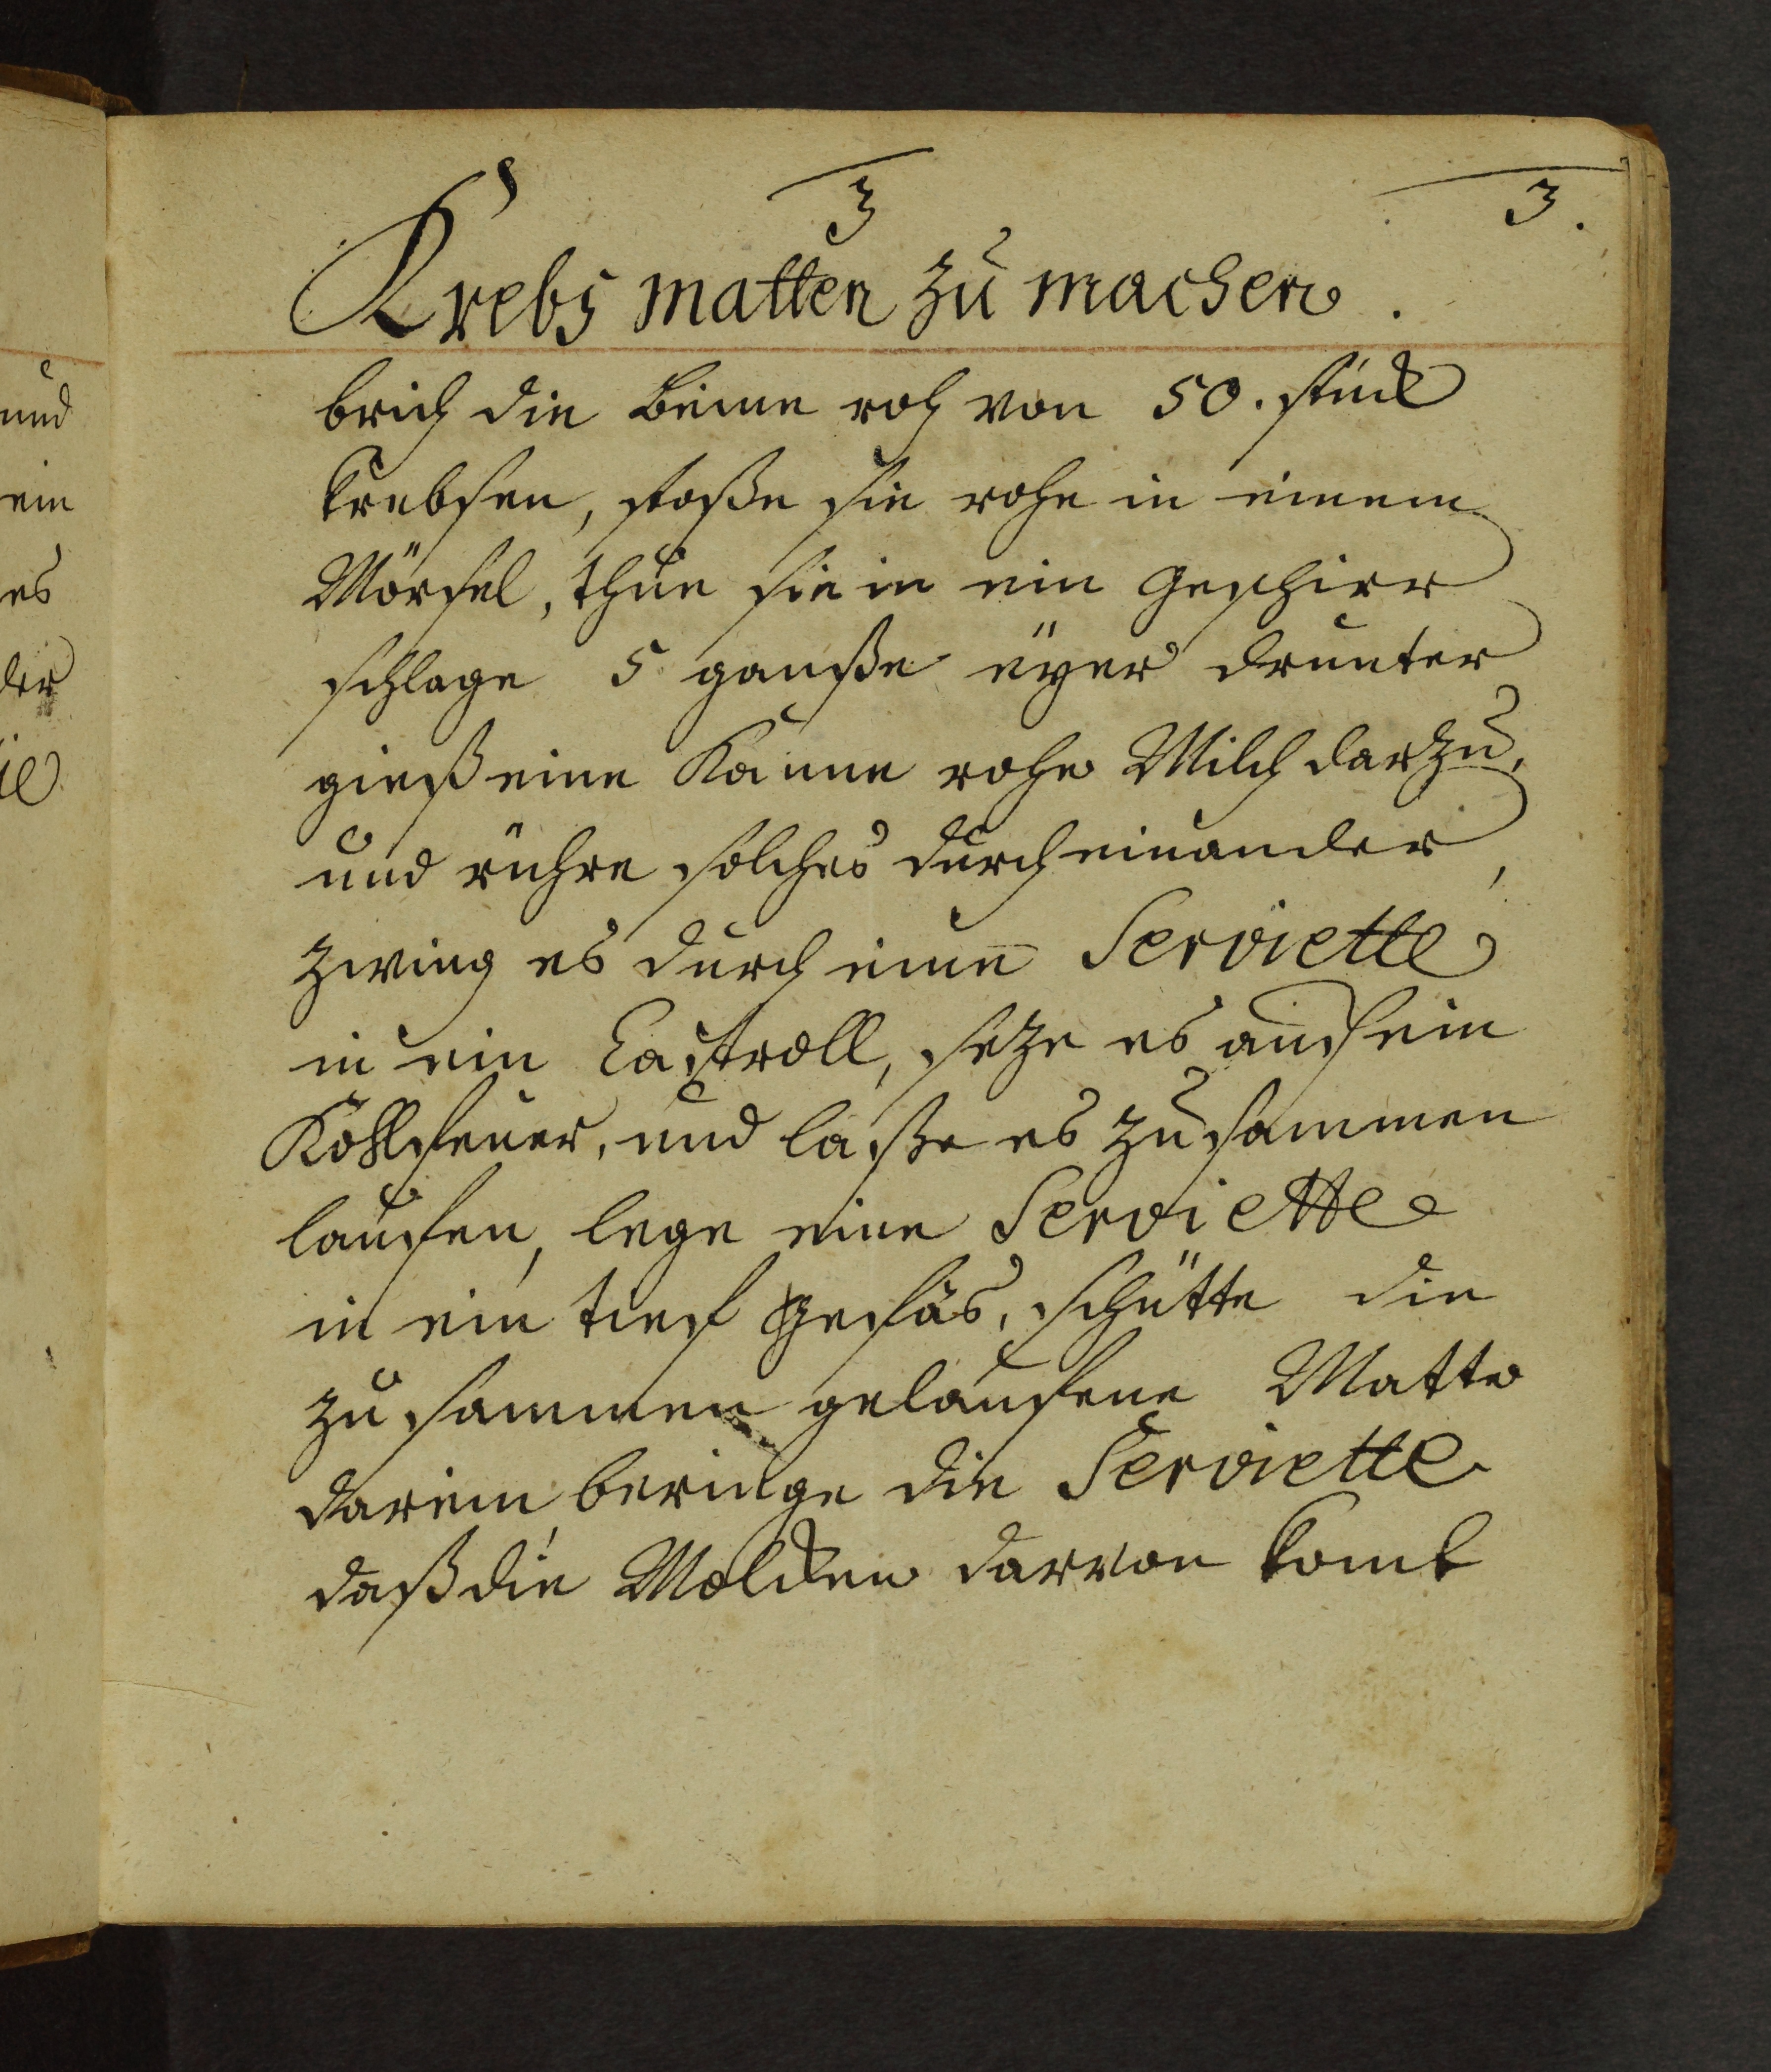 3
3.
Krebs matten zu machen.
brich die beine roh von 50. stück
Krebsen, stoße sie rohe in einem
Mörsel, thue sie in ein Geschirr
schlage 5 ganße eÿer drunter
gieß eine Kanne rohe Milch darzu,
und rühre solches durch einander,
zwing es durch eine Serviette
in ein Castroll, seze es auf ein
Kohlfeuer, und laße es zusammen
laufen, lege eine Serviette
in ein tief Gefäs, schütte die
zusammen gelaufene Matte
darein, beringe die Serviette
daß die Molcken darvon komt
und
ein
es
der